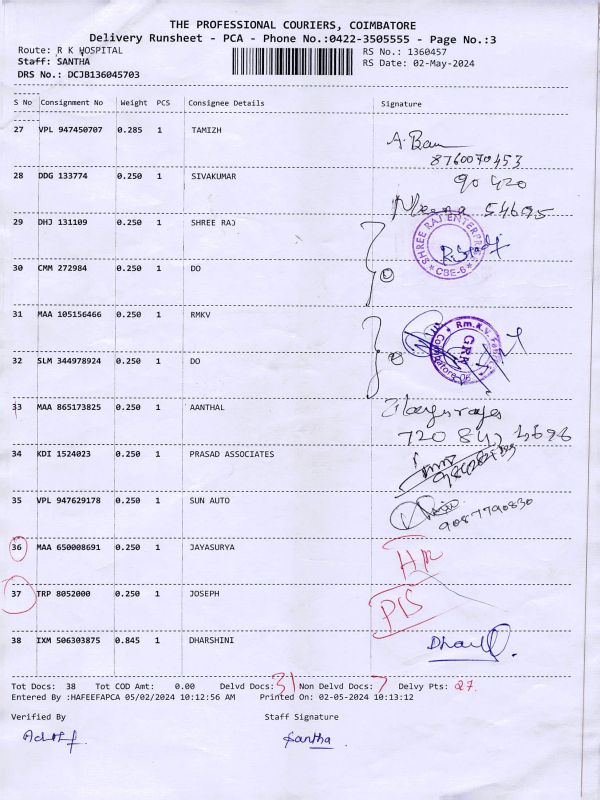 THE PROFESSIONAL COURIERS, COIMBATORE
Delivery Runsheet - PCA - Phone No.:0422-3505555 - Page No.:3
Route: R K HOSPITAL RS No.: 1360457
Staff: SANTHA RS Date: 02-May-2024
DRS No.: DCJB136045703
S No Consignment No Weight PCS Consignee Details Signature
27 VPL 947450707 0.285 1 TAMIZH
8760070453
28 DDG 133774 0.250 1 SIVAKUMAR 90 420
54695
29 DHJ 131109 0.250 1 SHREE RAJ SHREE RAJ ENTERPRISES CBE-6
30 CMM 272984 0.250 1 DO 2
31 MAA 105156466 0.250 1 RMKV Rm.K.V. GRR Coimbatore
32 SLM 344978924 0.250 1 DO
33 MAA 865173825 0.250 1 AANTHAL
720 843
34 KDI 1524023 0.250 1 PRASAD ASSOCIATES
35 VPL 947629178 0.250 1 SUN AUTO 9087790830
36 MAA 650008691 0.250 1 JAYASURYA
37 TRP 8052000 0.250 1 JOSEPH
38 IXM 506303875 0.845 1 DHARSHINI
Tot Docs: 38 Tot COD Amt: 0.00 Delvd Docs: 31 Non Delvd Docs: 7 Delvy Pts: 27.
Entered By :HAFEEFAPCA 05/02/2024 10:12:56 AM Printed On: 02-05-2024 10:13:12
Verified By Staff Signature
Santha